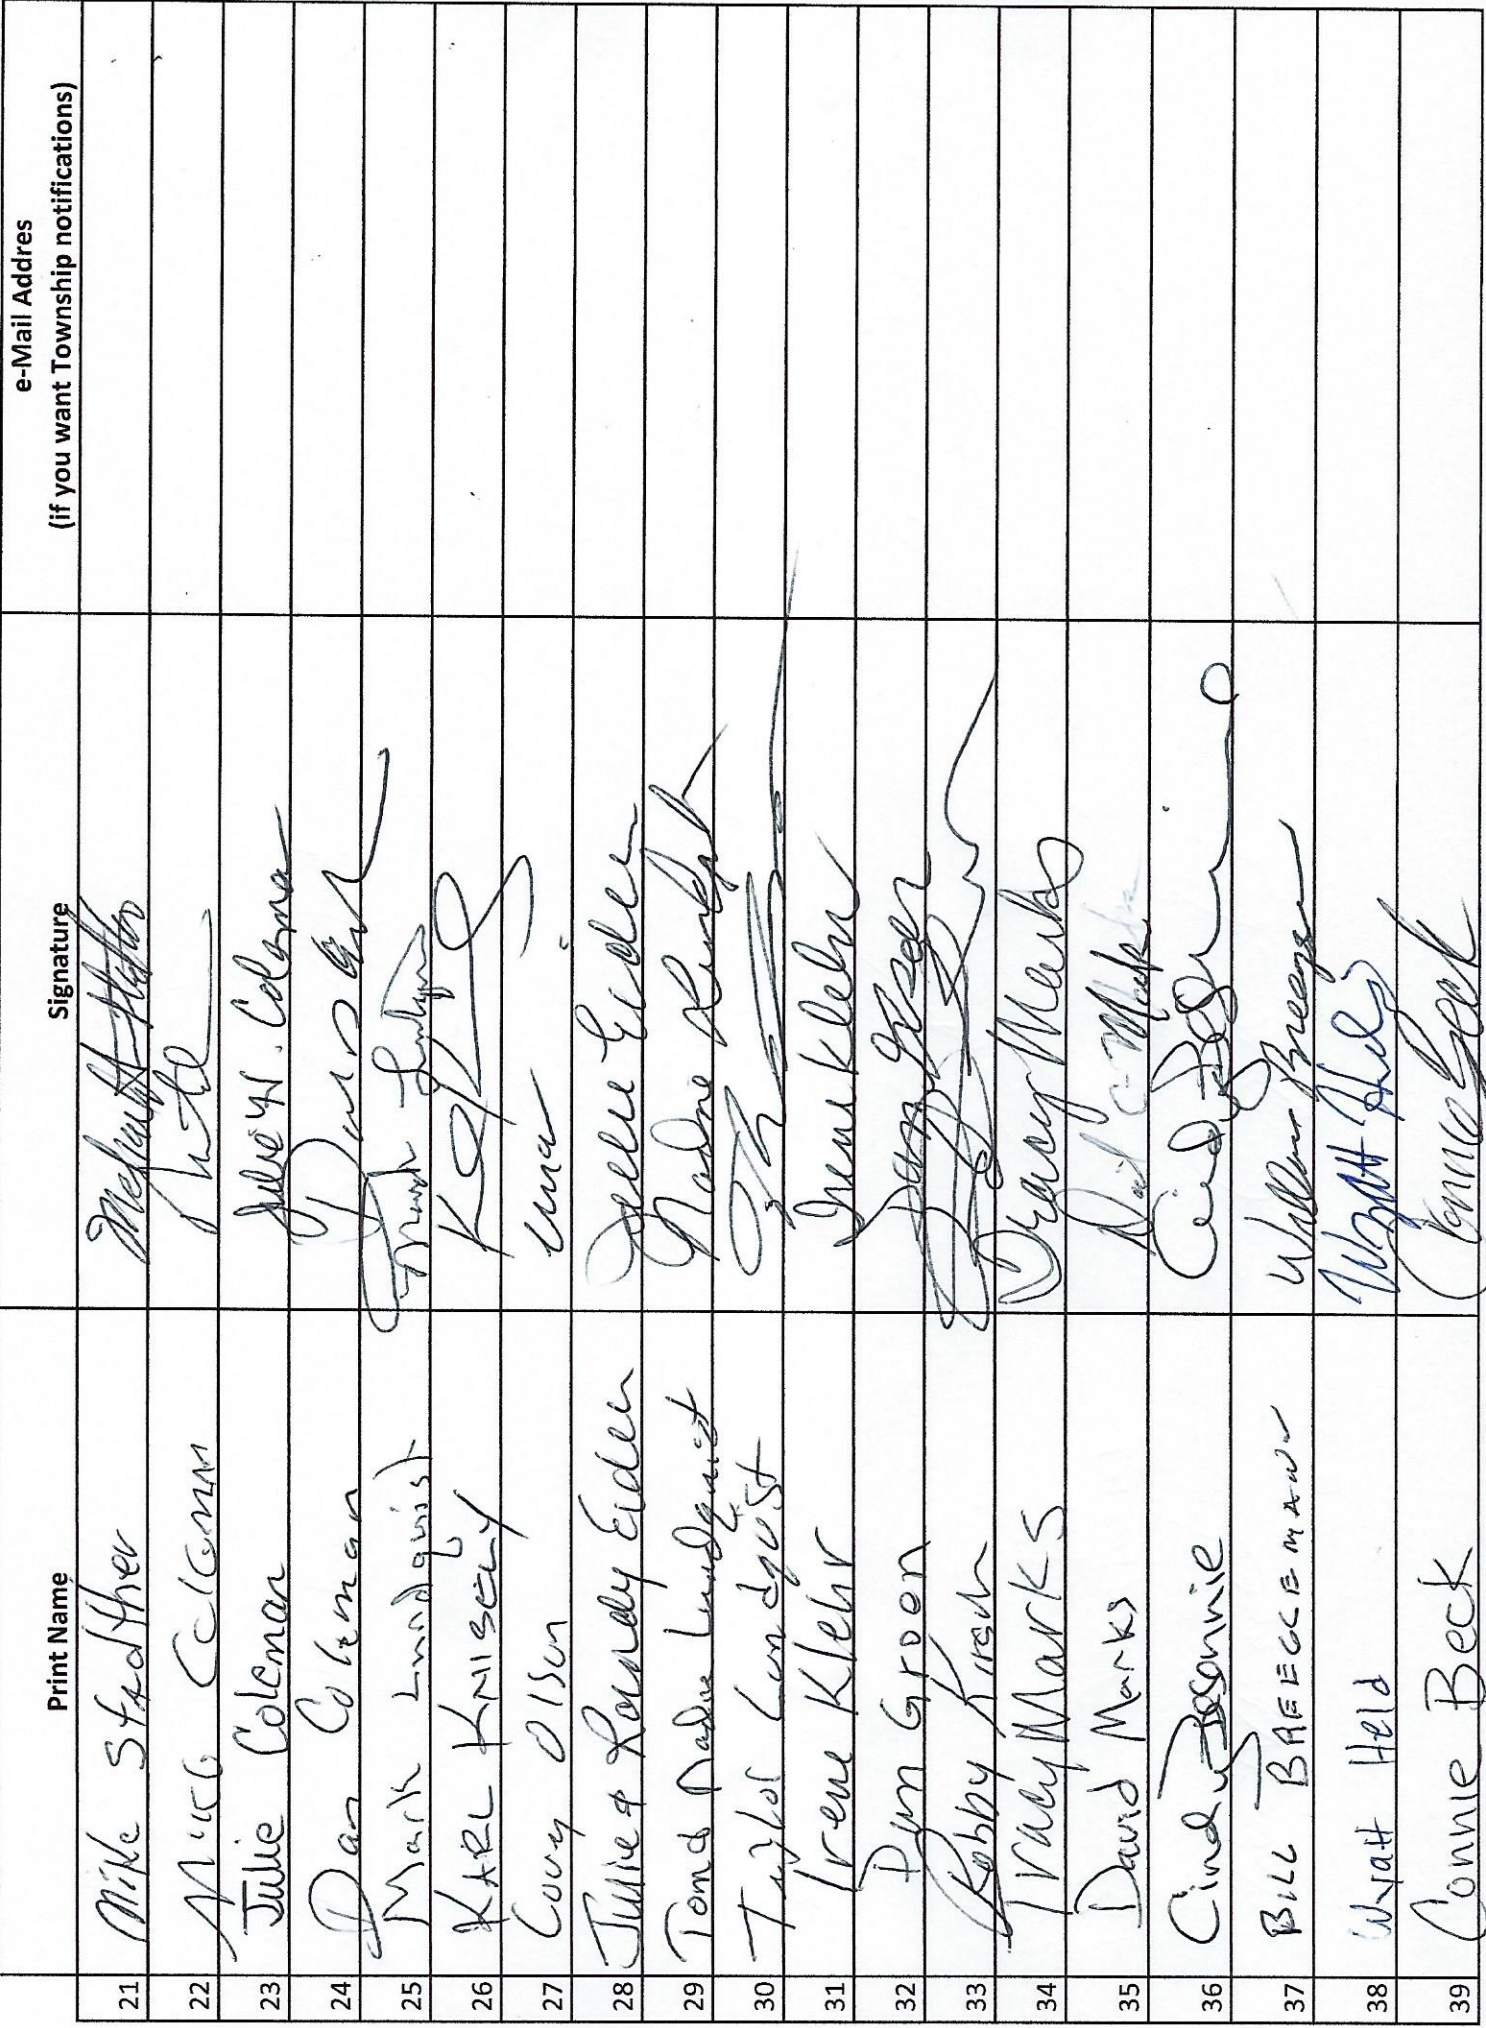 Print Name Signature e-Mail Addres
(if you want Township notifications)
21 Mike Stadther
22 Coleman
23 Julie Coleman Julie Coleman
24 Dan Coleman
25 Mark Lundquist Mark Lundquist
26 KARL KNISELY
27 Corey Olson
28 Julie & Randy Eiden Julie Eiden
29 Tom & Nadine Lundquist Nadine Lundquist
30 Taylor Lundquist
31 Irene Klehr Irene Klehr
32 Pam Groen Pam Groen
33 Robby Kirsch
34 Tracy Marks Tracy Marks
35 David Marks
36 Cindy
37 BILL BREEGGEMANN William
38 Wyatt Held Wyatt Held
39 Connie Beck Connie Beck